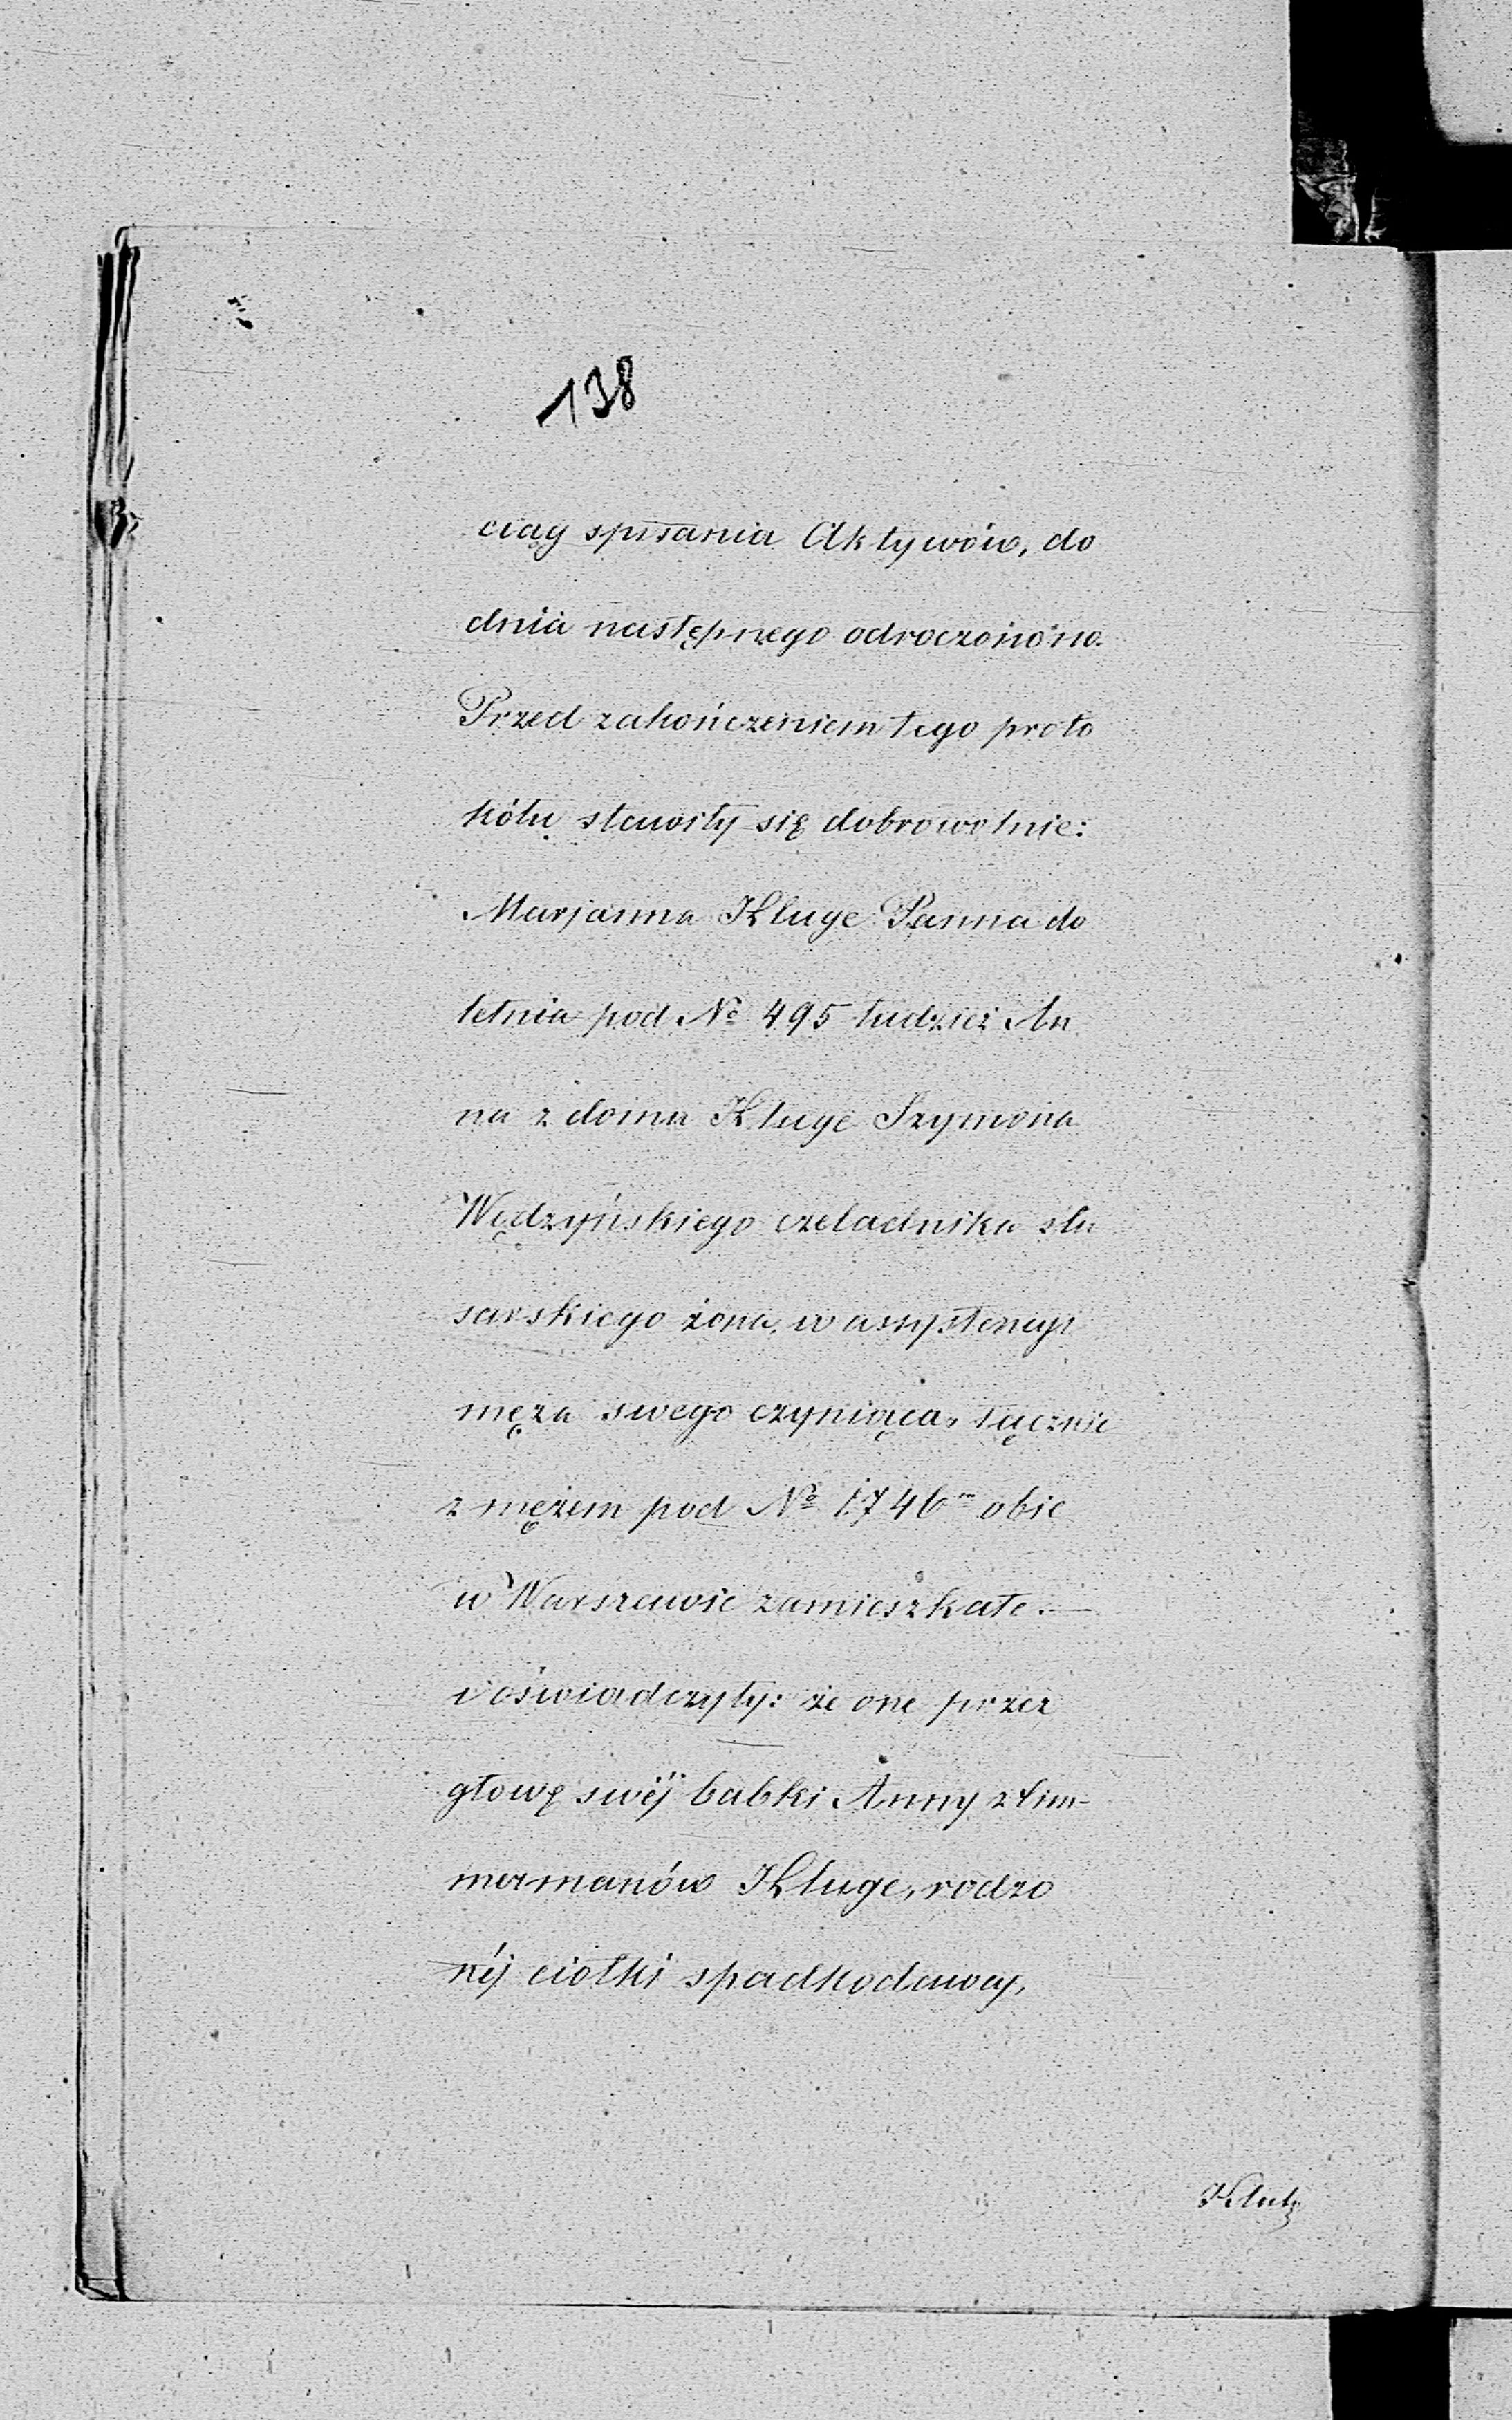 138
ciąg spisania Aktywów, do
dnia następnego odroczonono.
Przed zakończeniem tego proto
kółu stawiły się dobrowolnie:
Marjanna Kluge Panna do
letnia pod No 495 tudzież An
na z domu Kluge Szymona
Wędzyńskiego czeladnika slu
sarskiego żona, w assystencyi
męża swego czyniąca, łącznie
z mężem pod No 1746 obie
w Warszawie zamieszkałe.—
i oświadczyły: że one przez
głowę swéj babki Anny z Cim-
mermanów Kluge, rodzo
néj ciotki spadkodawcy,